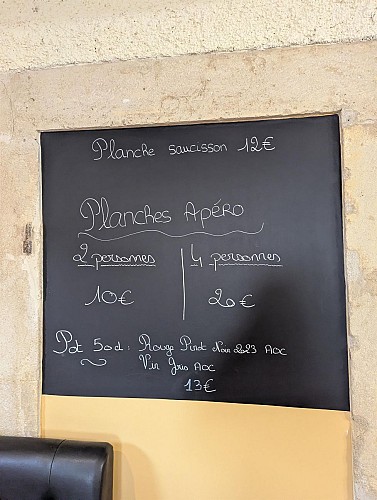 Planche saucisson 12€
Planches Apéro
2 personnes
10€
4 personnes
20€
Pot 50cl : Rouge Pinot Noir 2023 AOC
Vin Gris AOC
13€